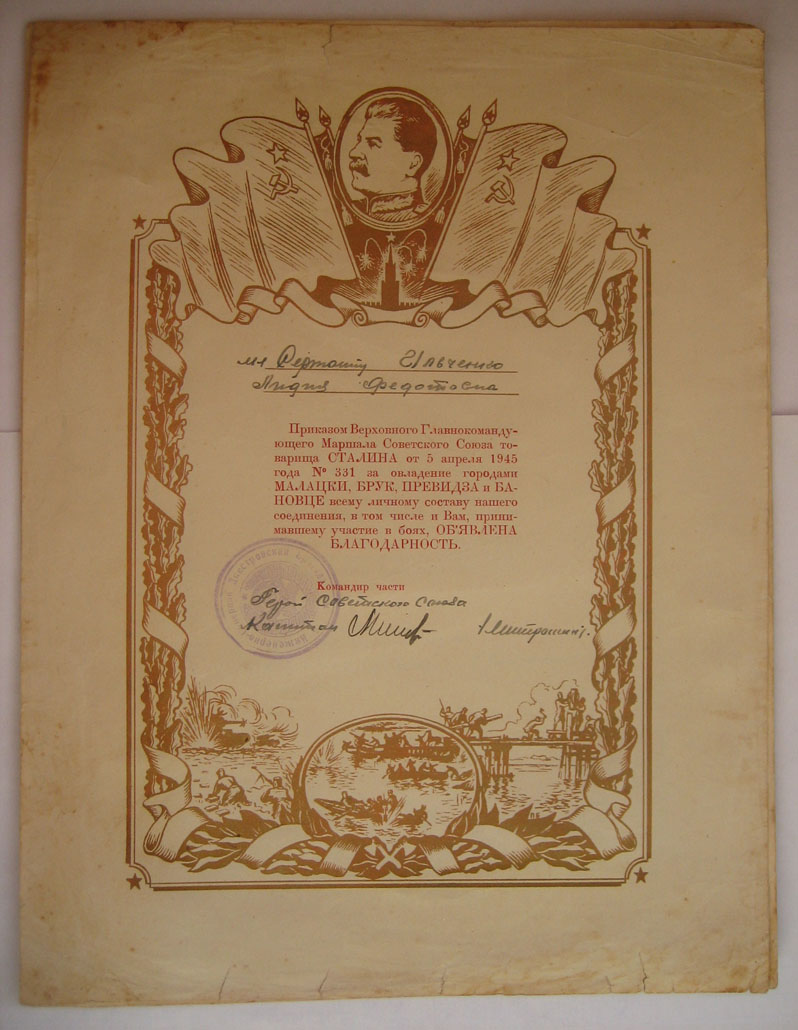 мл Сержанту Савченко
Лидия Федотовна
Приказом Верховного Главнокоманду-
ющего Маршала Советского Союза то-
варища СТАЛИНА от 5 апреля 1945
года № 331 за овладение городами
МАЛАЦКИ, БРУК, ПРЕВИДЗА и БА-
НОВЦЕ всему личному составу нашего
соединения, в том числе и Вам, прини-
мавшему участие в боях, ОБ'ЯВЛЕНА
БЛАГОДАРНОСТЬ.
Командир части
Герой Советского Союза
Капитан